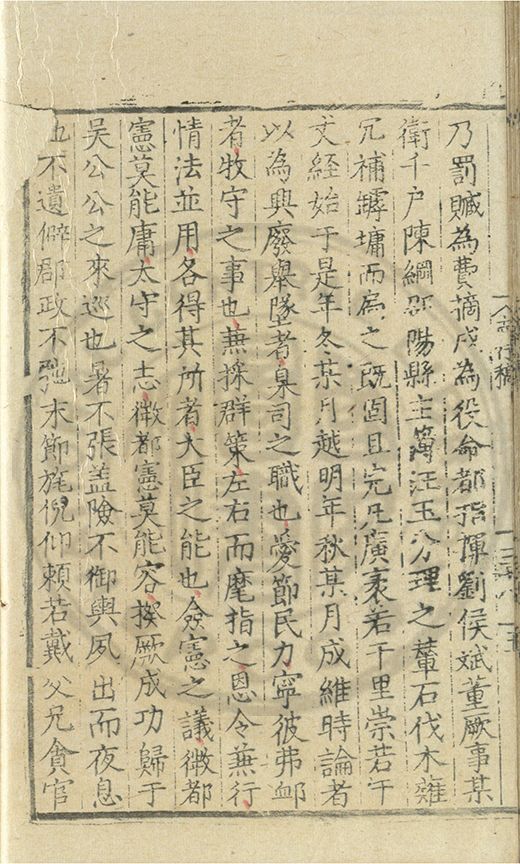 乃罰贓為費摘戍為役命都指揮劉侯斌董厥事某
衛千戶陳綱邵陽縣主簿汪玉分理之輦石伐木雍
冗補罅墉而扄之既固且完凡廣袤若干里崇若干
丈經始于是年冬某月越明年秋某月成維時論者
以為興廢舉墜者臬司之職也愛節民力寧彼弗卹
者牧守之事也兼採群策左右而麾指之恩令兼行
情法並用各得其所者大臣之能也僉憲之議微都
憲莫能庸太守之志微都憲莫能容揆厥成功歸于
吳公公之來巡也暑不張盖險不御輿夙出而夜息
也不遺僻郡政不弛末節旄倪仰賴若戴父兄貪官